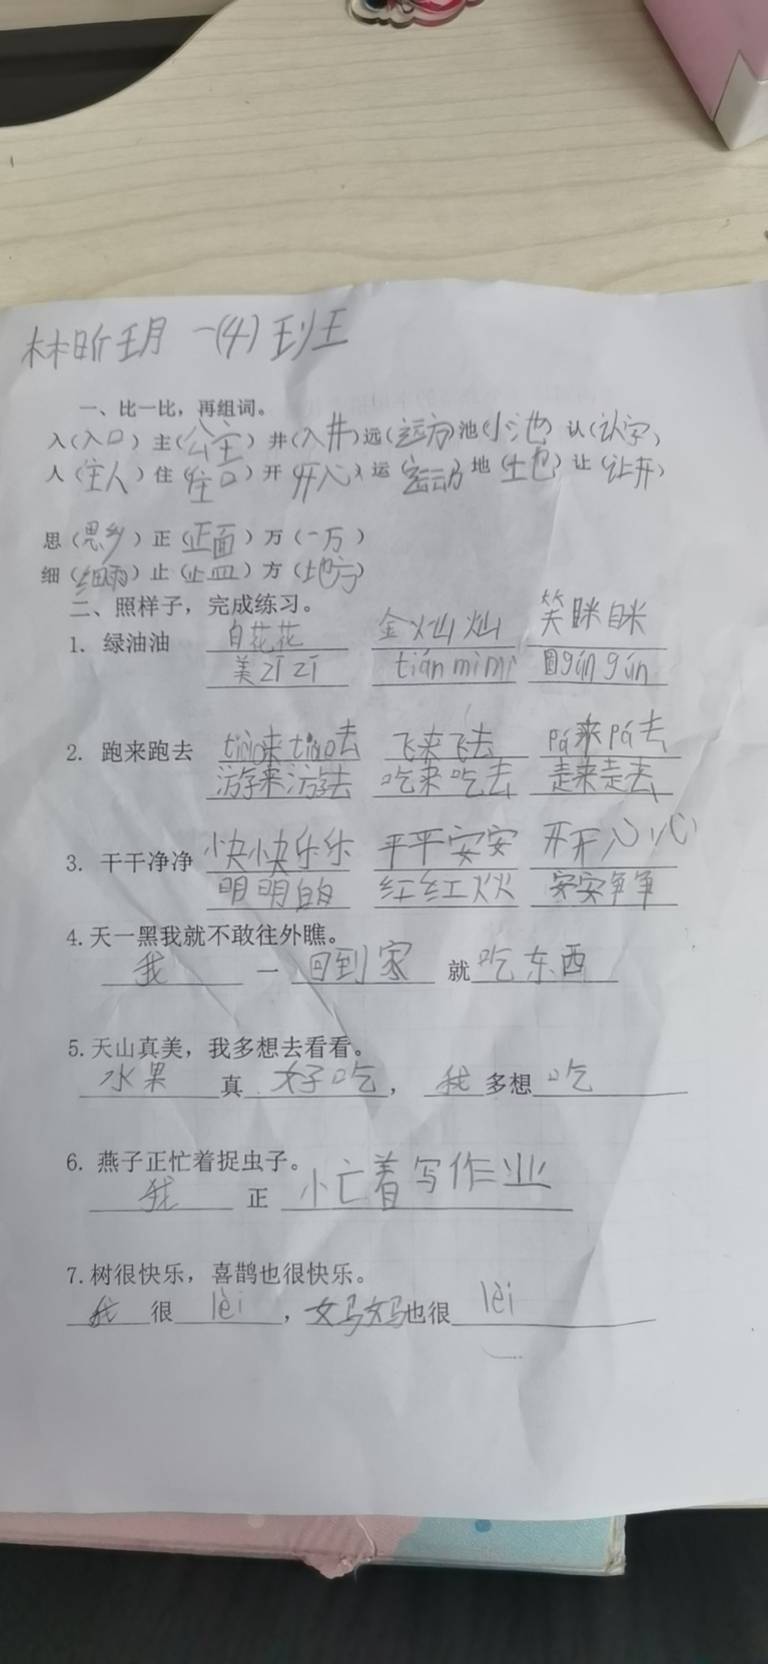 林昕玥 一(4)班
一、比一比，再组词。
入(入口) 主(公主) 井(入井) 远(远方) 池(小池) 认(认字)
人(主人) 住(住口) 开(开心) 运(运动) 地(土也) 让(让开)
思(思乡) 正(正面) 万(一万)
细(细雨) 止(止血) 方(地方)
二、照样子，完成练习。
1. 绿油油 白花花 金灿灿 笑眯眯
美zī zī tián mì mì 圆gún gún
2. 跑来跑去 tiào来tiào去 飞来飞去 pá来pá去
游来游去 吃来吃去 走来走去
3. 干干净净 快快乐乐 平平安安 开开心心
明明白白 红红火火 安安争争
4. 天一黑我就不敢往外瞧。
我 一 回到家 就 吃东西
5. 天山真美，我多想去看看。
水果 真 好吃， 我 多想 吃
6. 燕子正忙着捉虫子。
我 正 忙着写作业
7. 树很快乐，喜鹊也很快乐。
我 很 lèi ，妈妈也很 lèi